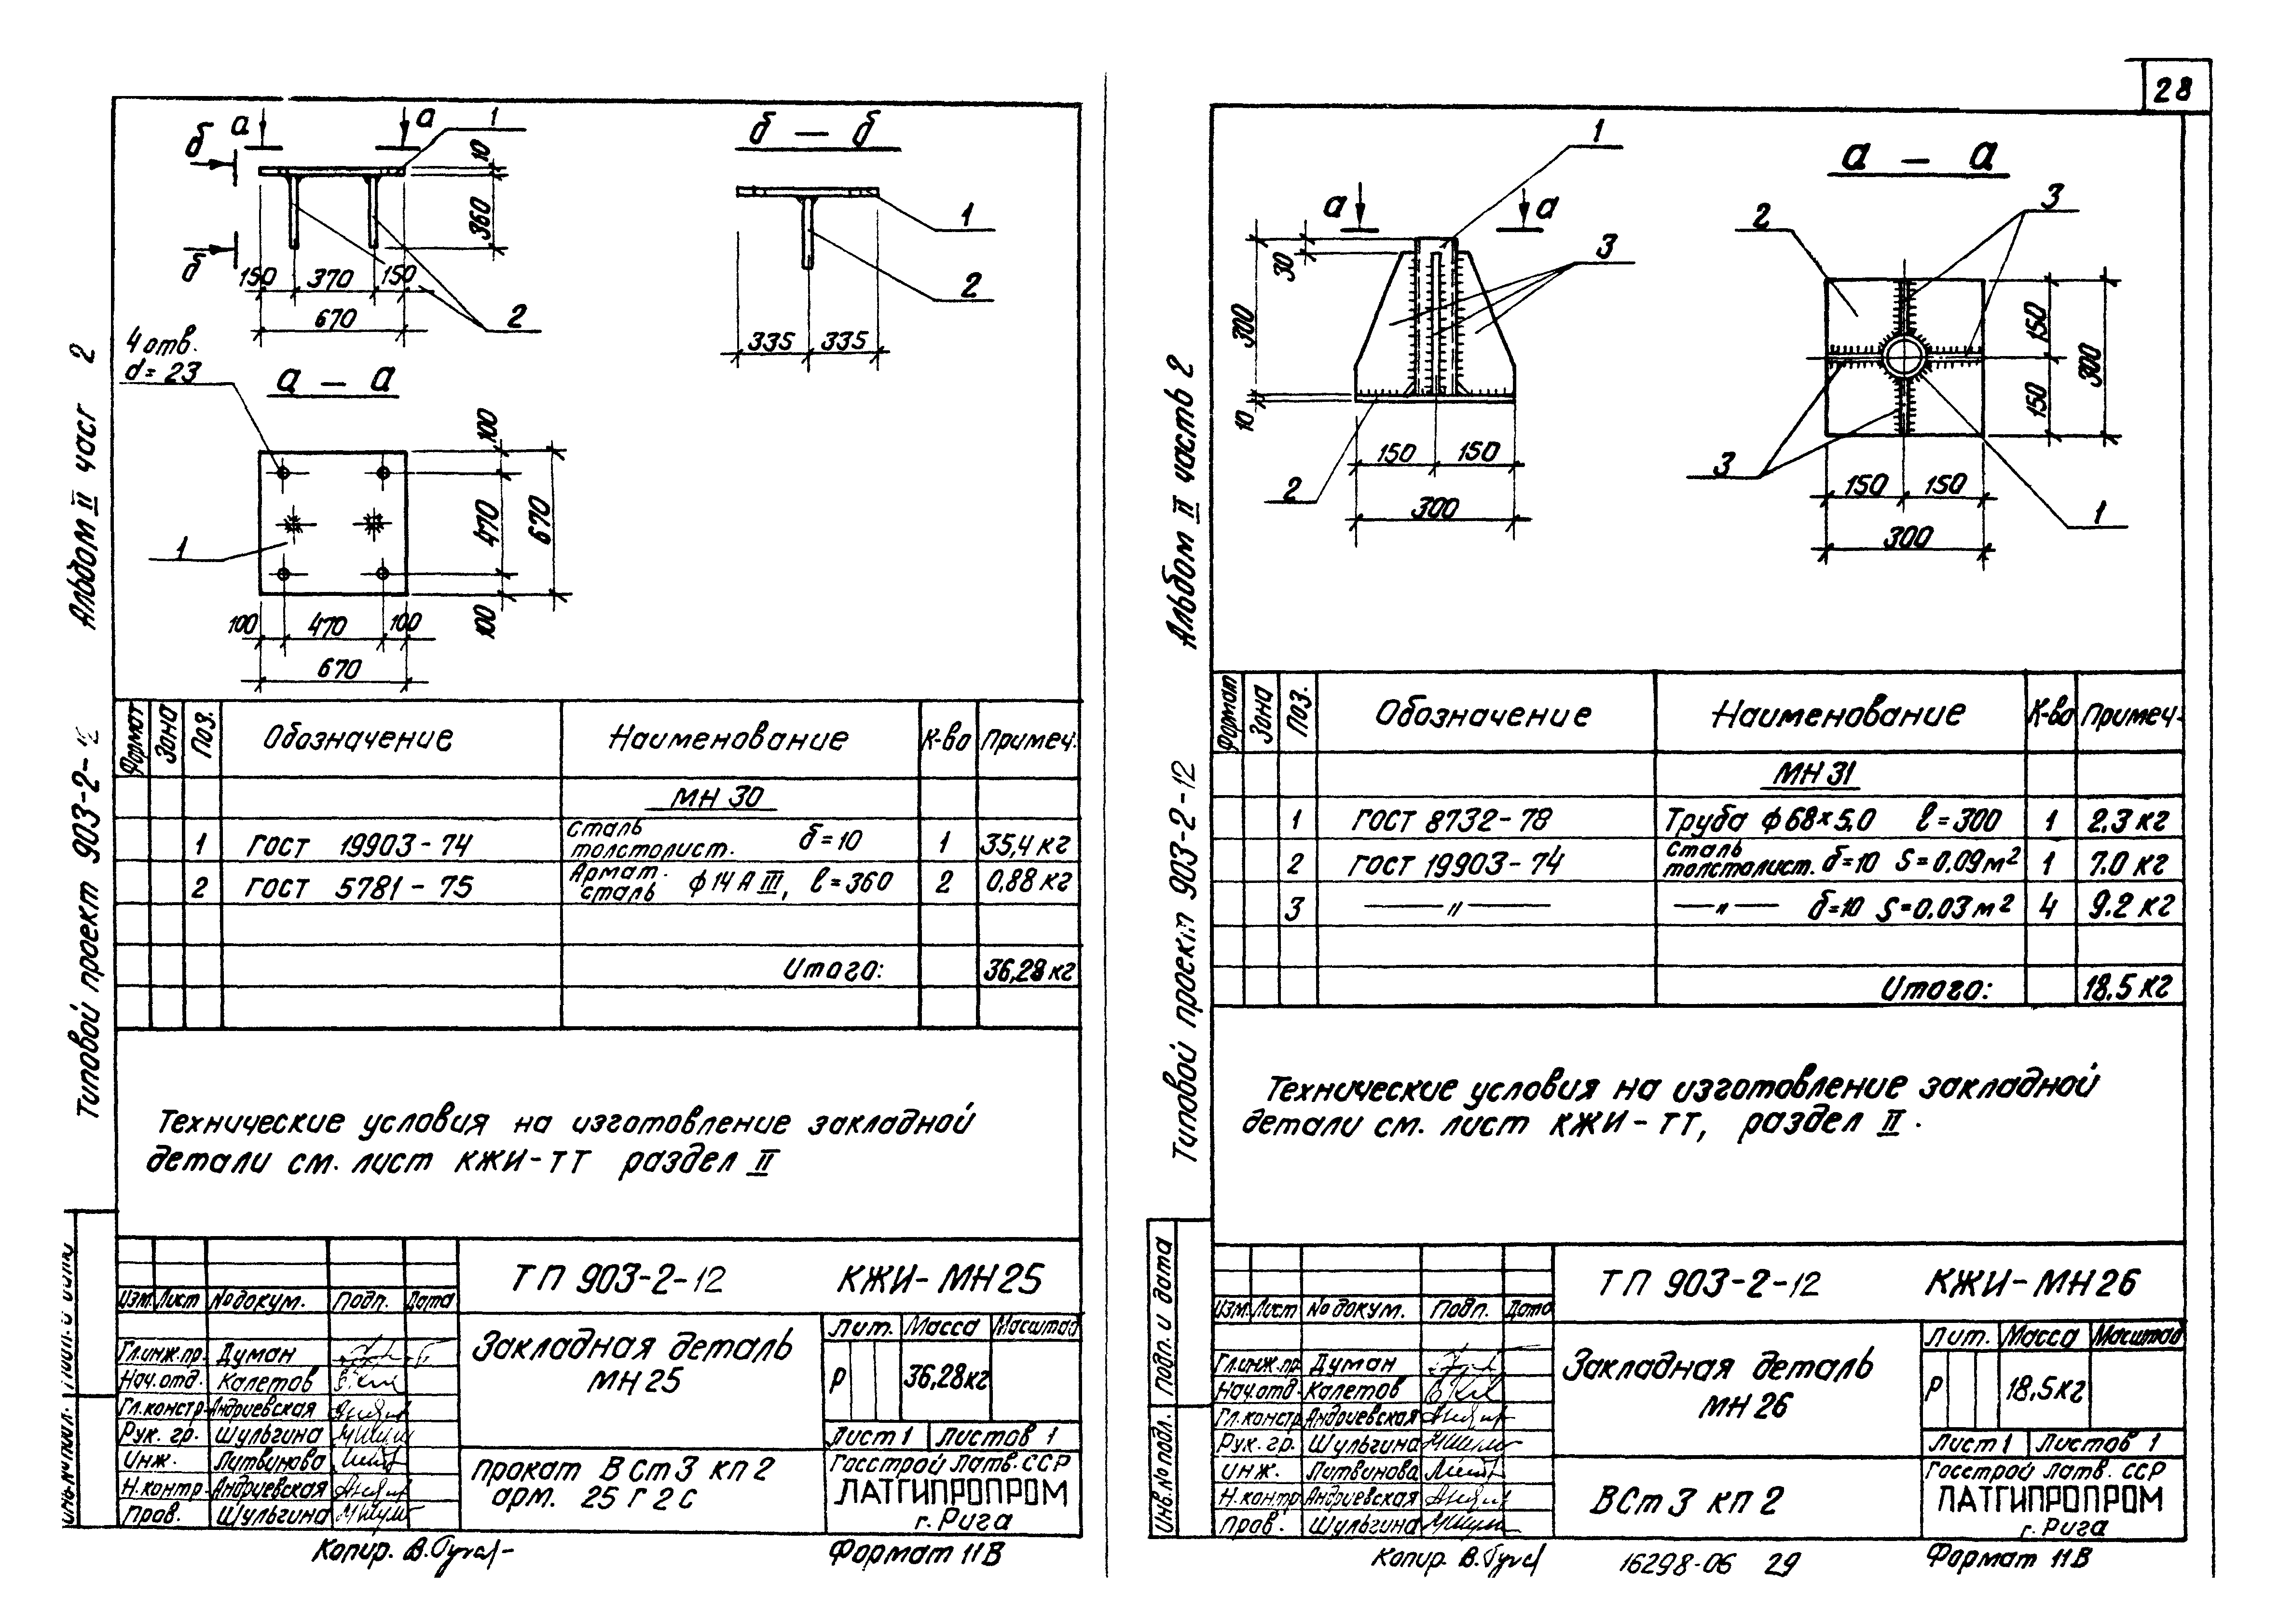 28
Альбом II част 2
Типовой проект 903-2-12
а
а
1
б
б
10
360
150
370
150
670
2
б – б
1
2
335
335
4 отв.
d=23
а – а
1
100
470
100
670
100
470
100
670
Формат Зона Поз. Обозначение Наименование К-во Примеч.
МН 30
1 ГОСТ 19903-74 Сталь толстолист. δ=10 1 35,4 кг
2 ГОСТ 5781-75 Армат. сталь ф14 А III, ℓ=360 2 0,88 кг
Итого: 36,28 кг
Технические условия на изготовление закладной
детали см. лист КЖИ-ТТ раздел II
ТП 903-2-12 КЖИ-МН25
Изм. Лист № докум. Подп. Дата
Гл.инж.пр. Думан
Нач.отд. Калетов
Гл.констр. Андриевская
Рук. гр. Шульгина
Инж. Литвинова
Н.контр. Андриевская
Пров. Шульгина
Закладная деталь
МН 25
Лит. Масса Масштаб
Р 36,28кг
Лист 1 Листов 1
прокат ВСт3 кп2
арм. 25Г2С
Госстрой Латв. ССР
ЛАТГИПРОПРОМ
г. Рига
Копир.
Формат 11В
Альбом II часть 2
Типовой проект 903-2-12
Подп. и дата
Инв.№ подл.
а
а
1
3
30
300
10
150
150
300
2
а – а
2
3
3
1
150
150
300
150
150
300
Формат Зона Поз. Обозначение Наименование К-во Примеч.
МН 31
1 ГОСТ 8732-78 Труба ф68×5,0 ℓ=300 1 2.3 кг
2 ГОСТ 19903-74 Сталь толстолист. δ=10 S=0.09м² 1 7.0 кг
3 —〃— —〃— δ=10 S=0.03м² 4 9.2 кг
Итого: 18.5 кг
Технические условия на изготовление закладной
детали см. лист КЖИ-ТТ, раздел II.
ТП 903-2-12 КЖИ-МН26
Изм. Лист № докум. Подп. Дата
Гл.инж.пр. Думан
Нач.отд. Калетов
Гл.констр. Андриевская
Рук. гр. Шульгина
Инж. Литвинова
Н.контр. Андриевская
Пров. Шульгина
Закладная деталь
МН 26
Лит. Масса Масштаб
Р 18,5кг
Лист 1 Листов 1
ВСт3 кп2
Госстрой Латв. ССР
ЛАТГИПРОПРОМ
г. Рига
Копир.
16298-06 29
Формат 11В